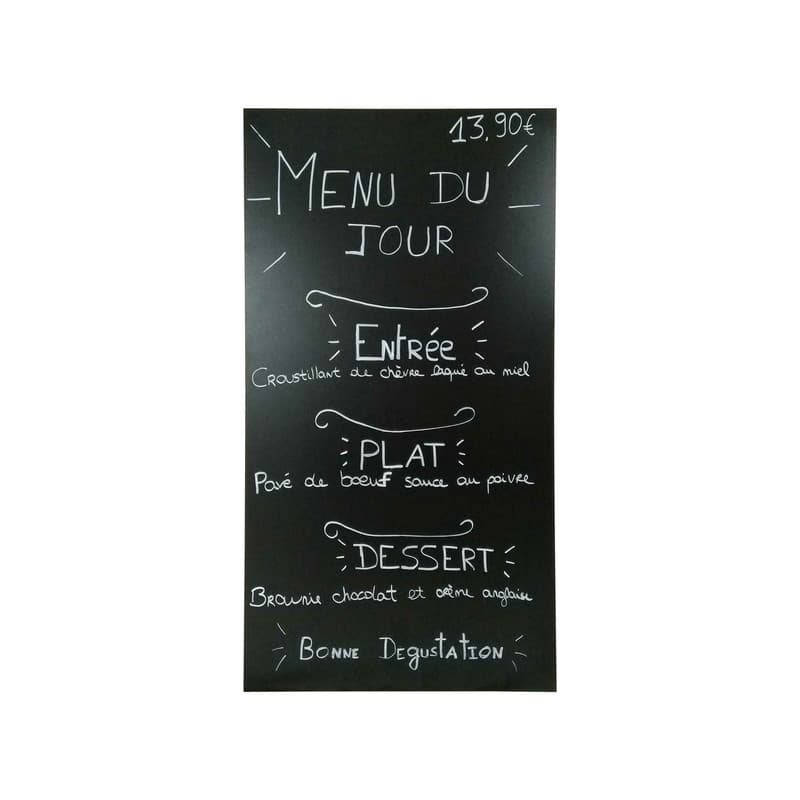 13,90€
MENU DU
JOUR
ENTRÉE
Croustillant de chèvre laqué au miel
PLAT
Pavé de boeuf sauce au poivre
DESSERT
Brownie chocolat et crème anglaise
BONNE DEGUSTATION